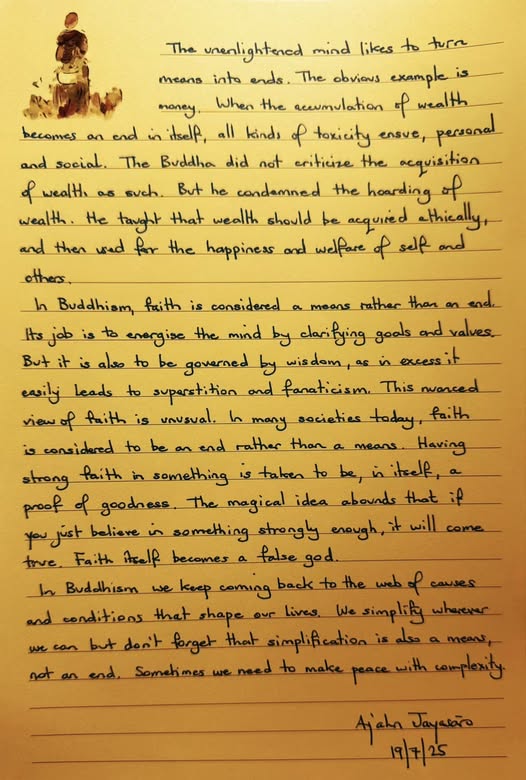 The unenlightened mind likes to turn
means into ends. The obvious example is
money. When the accumulation of wealth
becomes an end in itself, all kinds of toxicity ensue, personal
and social. The Buddha did not criticize the acquisition
of wealth as such. But he condemned the hoarding of
wealth. He taught that wealth should be acquired ethically,
and then used for the happiness and welfare of self and
others.
In Buddhism, faith is considered a means rather than an end.
Its job is to energise the mind by clarifying goals and values.
But it is also to be governed by wisdom, as in excess it
easily leads to superstition and fanaticism. This nuanced
view of faith is unusual. In many societies today, faith
is considered to be an end rather than a means. Having
strong faith in something is taken to be, in itself, a
proof of goodness. The magical idea abounds that if
you just believe in something strongly enough, it will come
true. Faith itself becomes a false god.
In Buddhism we keep coming back to the web of causes
and conditions that shape our lives. We simplify wherever
we can but don't forget that simplification is also a means,
not an end. Sometimes we need to make peace with complexity.
Ajahn Jayasāro
19/7/25